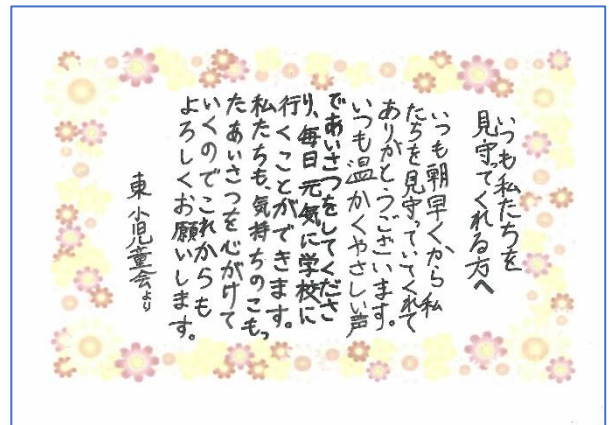 いつも私たちを
見守ってくれる方へ
いつも朝早くから私
たちを見守っていてくれて
ありがとうございます。
いつも温かくやさしい声
であいさつをしてくださ
り、毎日元気に学校に
行くことができます。
私たちも、気持ちのこもっ
たあいさつを心がけて
いくのでこれからも
よろしくお願いします。
東小児童会より